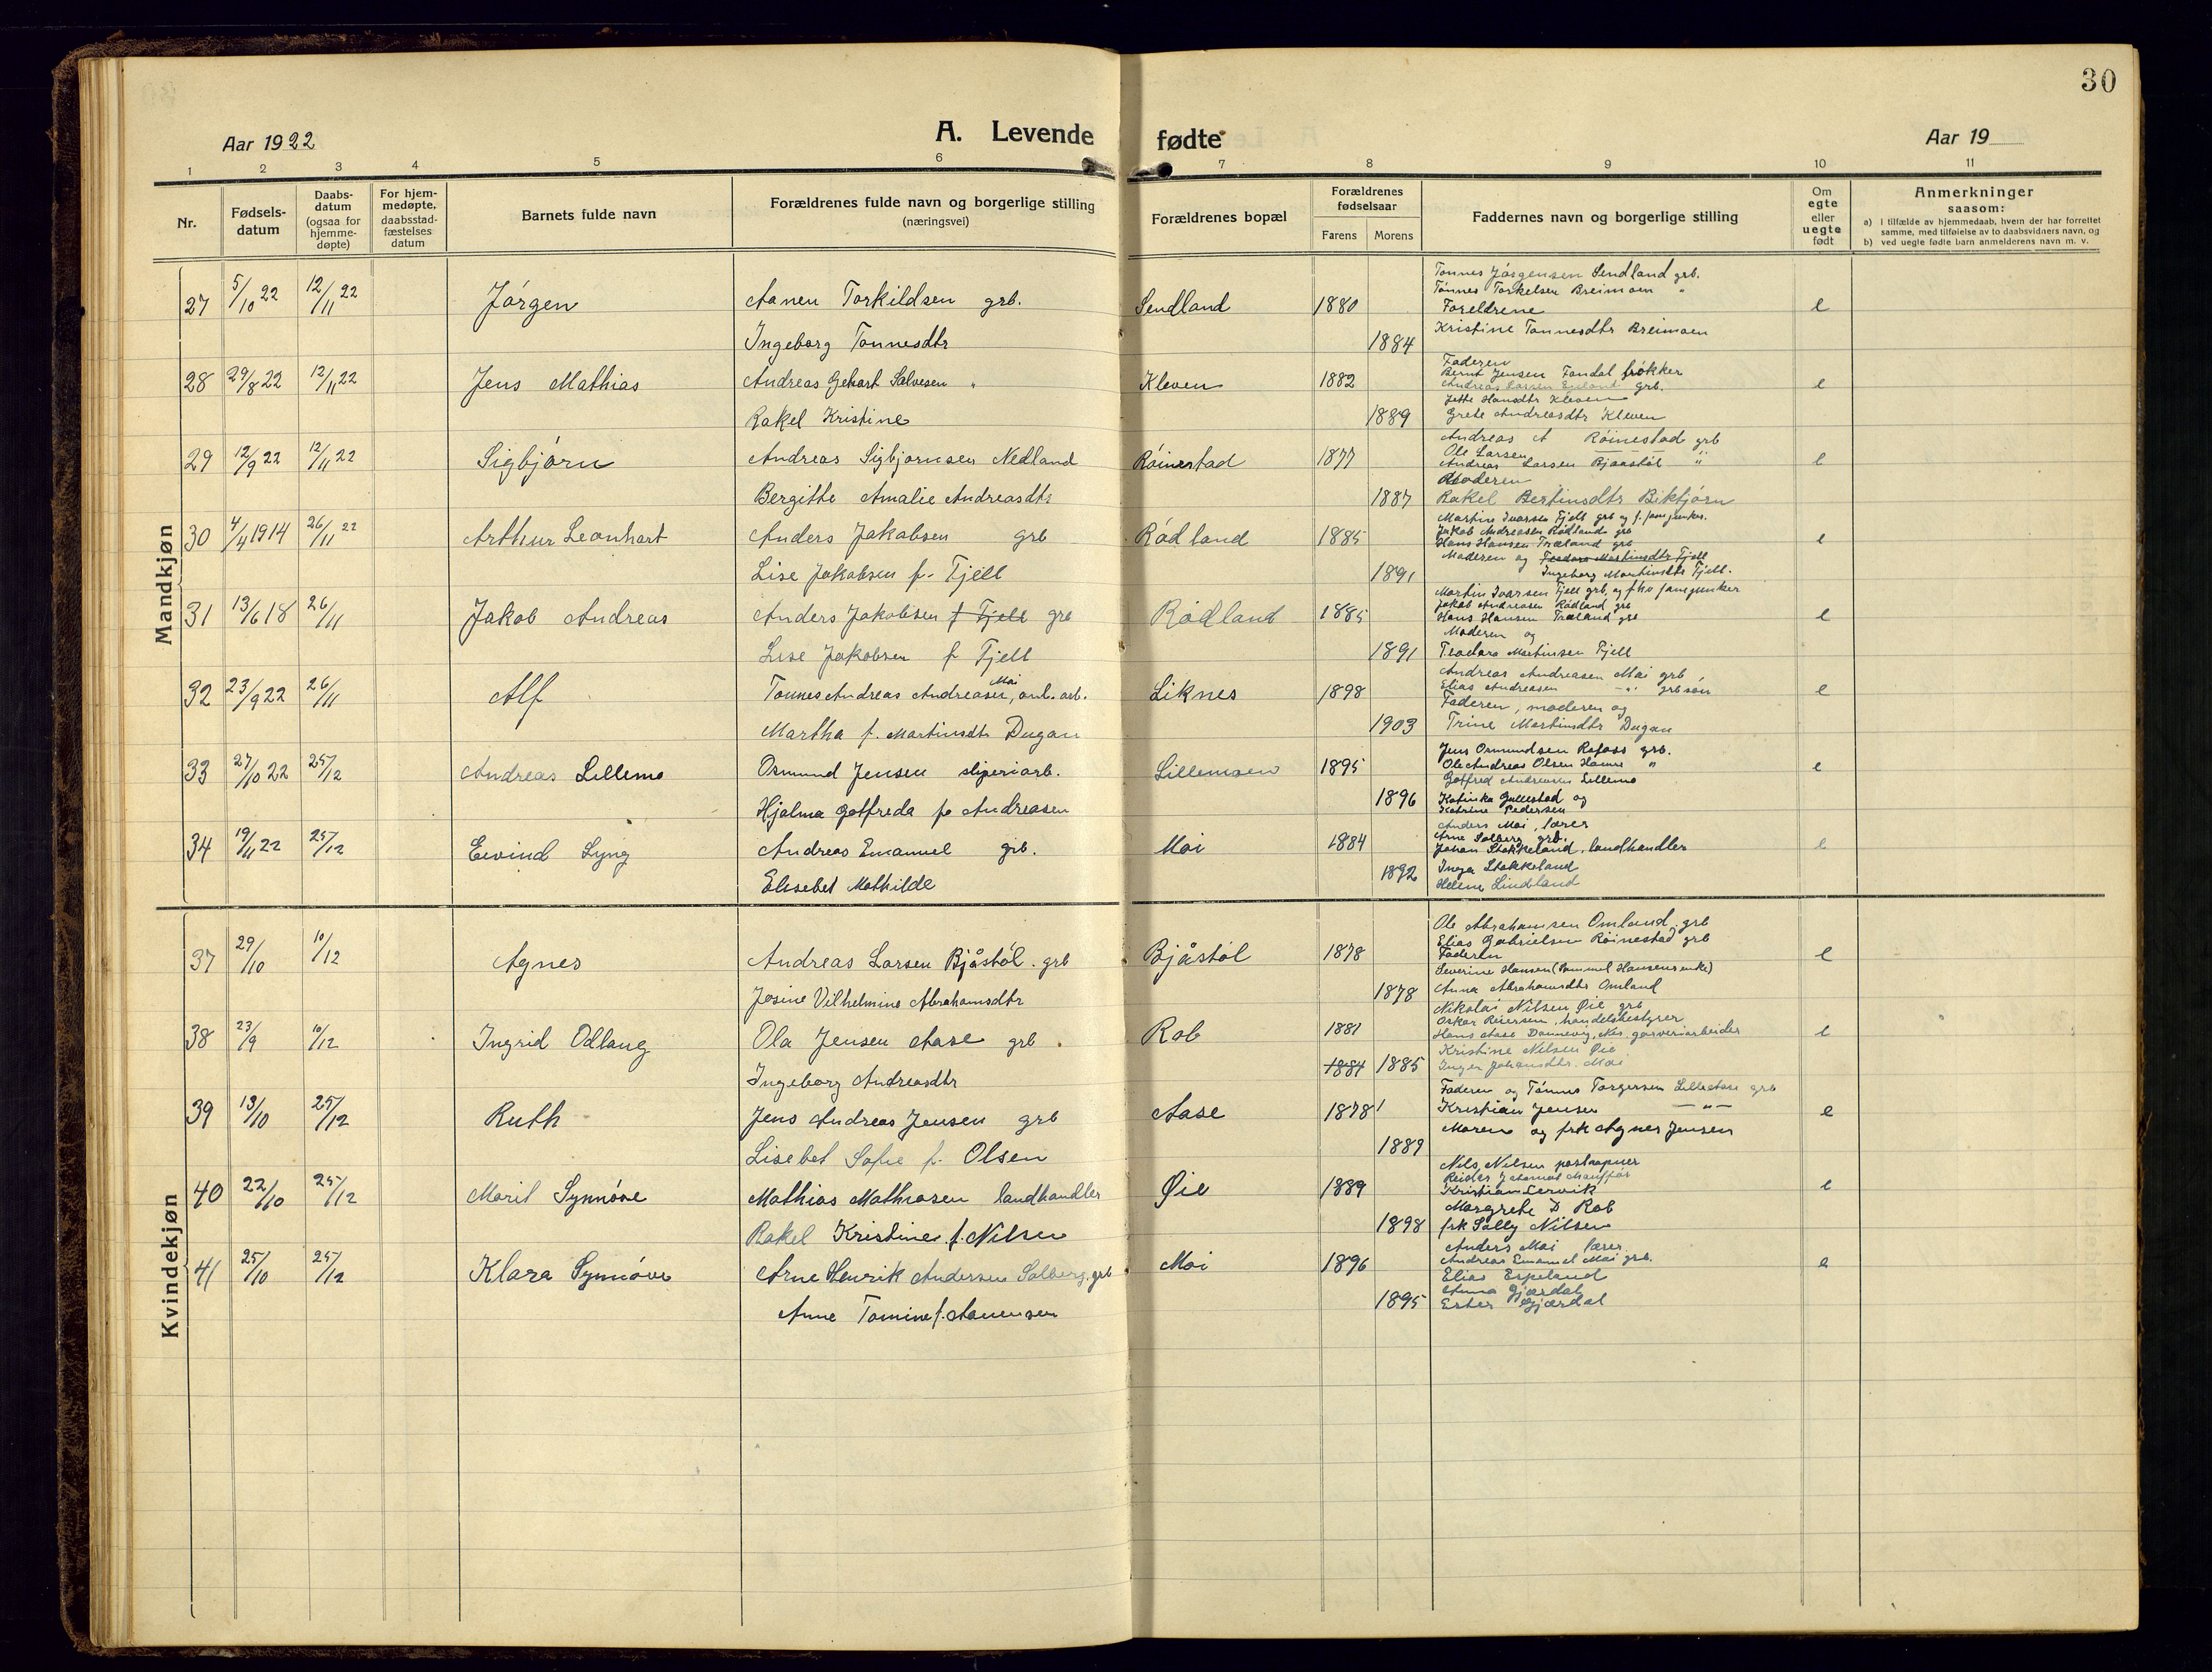 30
Aar 1922
A. Levende
fødte
Aar 19
1 2 3 4 5 6 7 8 9 10 11
Nr.
Fødsels-
datum
Daabs-
datum
(ogsaa for
hjemme-
døpte)
For hjem-
medøpte,
daabsstad-
fæstelses
datum
Barnets fulde navn
Forældrenes fulde navn og borgerlige stilling
(næringsvei)
Forældrenes bopæl
Forældrenes
fødselsaar
Farens Morens
Faddernes navn og borgerlige stilling
Om
egte
eller
uegte
født
Anmerkninger
saasom:
a) i tilfælde av hjemmedaab, hvem der har forrettet
samme, med tilføielse av to daabsvidners navn, og
b) ved uegte fødte barn anmelderens navn m. v.
Mandkjøn
27 5/10 22 12/11 22 Jørgen Aanen Torkildsen grb. Sendland 1880 e
Ingeborg Tønnesdtr 1884
Tønnes Jørgensen Sendland grb.
Tønnes Torkelsen Breimoen "
Foreldrene
Kristine Tønnesdtr Breimoen
28 29/8 22 12/11 22 Jens Mathias Andreas Gehart Salvesen " Kleven 1882 e
Rakel Kristine 1889
Faderen
Bernt Jensen
Andreas Larsen grb.
Jette Hansdtr Kleven
Grete Andreasdtr Kleven
29 12/9 22 12/11 22 Sigbjørn Andreas Sigbjørnsen Nedland Røinestad 1877 e
Bergitte Amalie Andreasdtr 1887
Andreas A Røinestad grb
Ole Larsen
Andreas Larsen Bjaastøl "
Moderen
Rakel Bertinsdtr Biktjørn
30 4/4 1914 26/11 22 Arthur Leonhart Anders Jakobsen grb Rødland 1885 e
Lise Jakobsen f. Fjell 1891
Martin Ivarsen Fjell grb og f.
Jakob Andreasen Rødland grb
Hans Hansen Træland grb
Moderen og Teodora Martinsdtr Fjell
Ingeborg Martinsdtr Fjell.
31 13/6 18 26/11 Jakob Andreas Anders Jakobsen f Fjell grb Rødland 1885 e
Lise Jakobsen f Fjell 1891
Martin Ivarsen Fjell grb, og
Jakob Andreasen Rødland grb
Hans Hansen Træland grb
Moderen og
Teodora Martinsen Fjell
32 23/9 22 26/11 Alf Tønnes Andreas Andreasen Moi, anl. arb. Liknes 1898 e
Martha f. Martinsdtr Dugan 1903
Andreas Andreasen Moi grb
Elias Andreasen -"- grbsøn
Faderen, moderen og
Trine Martinsdtr Dugan
33 27/10 22 25/12 Andreas Lillemo Osmund Jensen sliperiarb. Lillemoen 1895 e
Hjalma Gotfreda f. Andreasen 1896
Jens Osmundsen Rafoss grb.
Ole Andreas Olsen "
Gotfred Andreasen Lillemo
Katinka Gullestad og
Katrine Pedersen
34 19/11 22 25/12 Eivind Lyng Andreas Emanuel grb. Moi 1884 e
Elisebet Mathilde 1892
Anders Moi, lærer
Arne Solberg grb.
Johan Stakkeland, landhandler
Inga Stakkeland
Helene Lindland
Kvindekjøn
37 29/10 10/12 Agnes Andreas Larsen Bjåstøl. grb Bjåstøl 1878 e
Josine Vilhelmine Abrahamsdtr 1878
Ole Abrahamsen Omland, grb
Elias Gabrielsen Røinestad grb
Faderen
Severine Hansen (Sammel Hansens enke)
Anna Abrahamsdtr Omland
38 23/9 10/12 Ingrid Odlaug Ola Jensen Aase grb. Rob 1881 e
Ingeborg Andreasdtr 1884 1885
Nikolai Nilsen Øie grb
Oskar Reiersen, handelsbestyrer
Hans Aase Dannevig, garveriarbeider
Kristine Nilsen Øie
Inger Johansdtr. Moi
39 13/10 25/12 Ruth Jens Andreas Jensen grb Aase 1878 e
Lisebet Sofie f. Olsen 1889
Faderen og Tønnes Torgersen grb
Kristian Jensen -"-
Moren og frk Agnes Jensen
40 22/10 25/12 Marit Synnøve Mathias Mathiasen landhandler Øie 1889 e
Rakel Kristine f. Nilsen 1898
Nils Nilsen postaapner
Reider
Kristian Lervik
Margrete D Rob
frk Sally Nilsen
41 25/10 25/12 Klara Synnøve Arne Henrik Andersen Solberg, grb Moi 1896 e
Anne Tomine f. Aanensen 1895
Anders Moi lærer
Andreas Emanuel Moi grb.
Elias Espeland
Anna Gjærdal
Ester Gjærdal